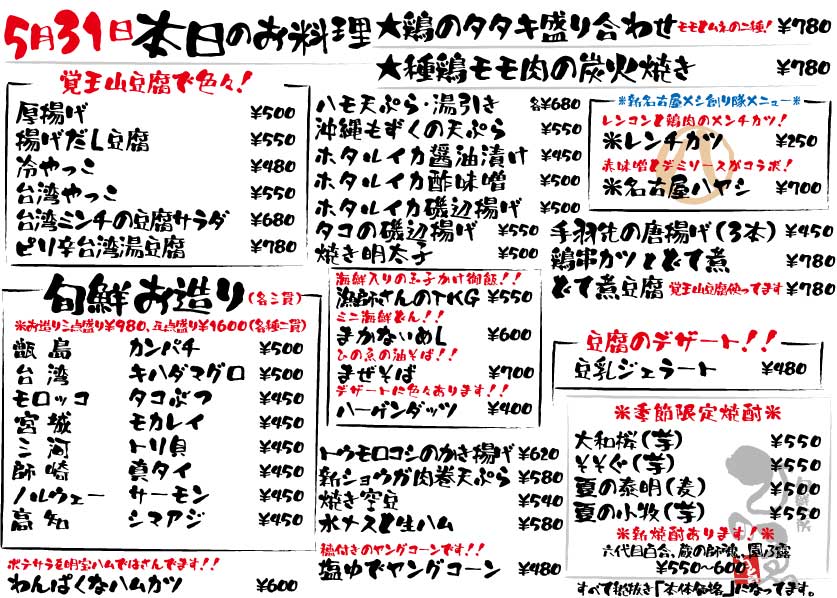 5月31日 本日のお料理
★鶏のタタキ盛り合わせ モモとムネの二種! ¥780
★種鶏モモ肉の炭火焼き ¥780
覚王山豆腐で色々!
厚揚げ ¥500
揚げだし豆腐 ¥550
冷やっこ ¥480
台湾やっこ ¥550
台湾ミンチの豆腐サラダ ¥680
ピリ辛台湾湯豆腐 ¥780
旬鮮お造り(各三貫)
※お造り三点盛り¥980、五点盛り¥1600(各種二貫)
甑島 カンパチ ¥500
台湾 キハダマグロ ¥500
モロッコ タコぶつ ¥450
宮城 モカレイ ¥450
三河 トリ貝 ¥450
師崎 真タイ ¥450
ノルウェー サーモン ¥450
高知 シマアジ ¥450
ポテサラを明宝ハムではさんでます!!
わんぱくなハムカツ ¥600
ハモ天ぷら・湯引き 各¥680
沖縄もずくの天ぷら ¥550
ホタルイカ醤油漬け ¥450
ホタルイカ酢味噌 ¥500
ホタルイカ磯辺揚げ ¥500
タコの磯辺揚げ ¥550
焼き明太子 ¥550
海鮮入りの玉子かけ御飯!!
漁師さんのTKG ¥550
ミニ海鮮どん!!
まかないめし ¥600
ひの魚の油そば!!
まぜそば ¥700
デザートに色々あります!!
ハーゲンダッツ ¥400
トウモロコシのかき揚げ ¥620
新ショウガ肉巻天ぷら ¥580
焼き空豆 ¥540
水ナスと生ハム ¥580
穂付きのヤングコーンです!!
塩ゆでヤングコーン ¥480
※新名古屋メシ創り隊メニュー※
レンコンと鶏肉のメンチカツ!
※レンチカツ ¥250
赤味噌とデミソースがコラボ!
※名古屋ハヤシ ¥700
手羽先の唐揚げ(3本) ¥450
鶏串カツとどて煮 ¥780
どて煮豆腐 覚王山豆腐使ってます ¥780
豆腐のデザート!!
豆乳ジェラート ¥480
※季節限定焼酎※
大和桜(芋) ¥550
そそぐ(芋) ¥550
夏の泰明(麦) ¥500
夏の小牧(芋) ¥550
※新焼酎あります!※
六代目百合、蔵の師魂、園乃露
¥550~600
すべて税抜き「本体価格」になってます。